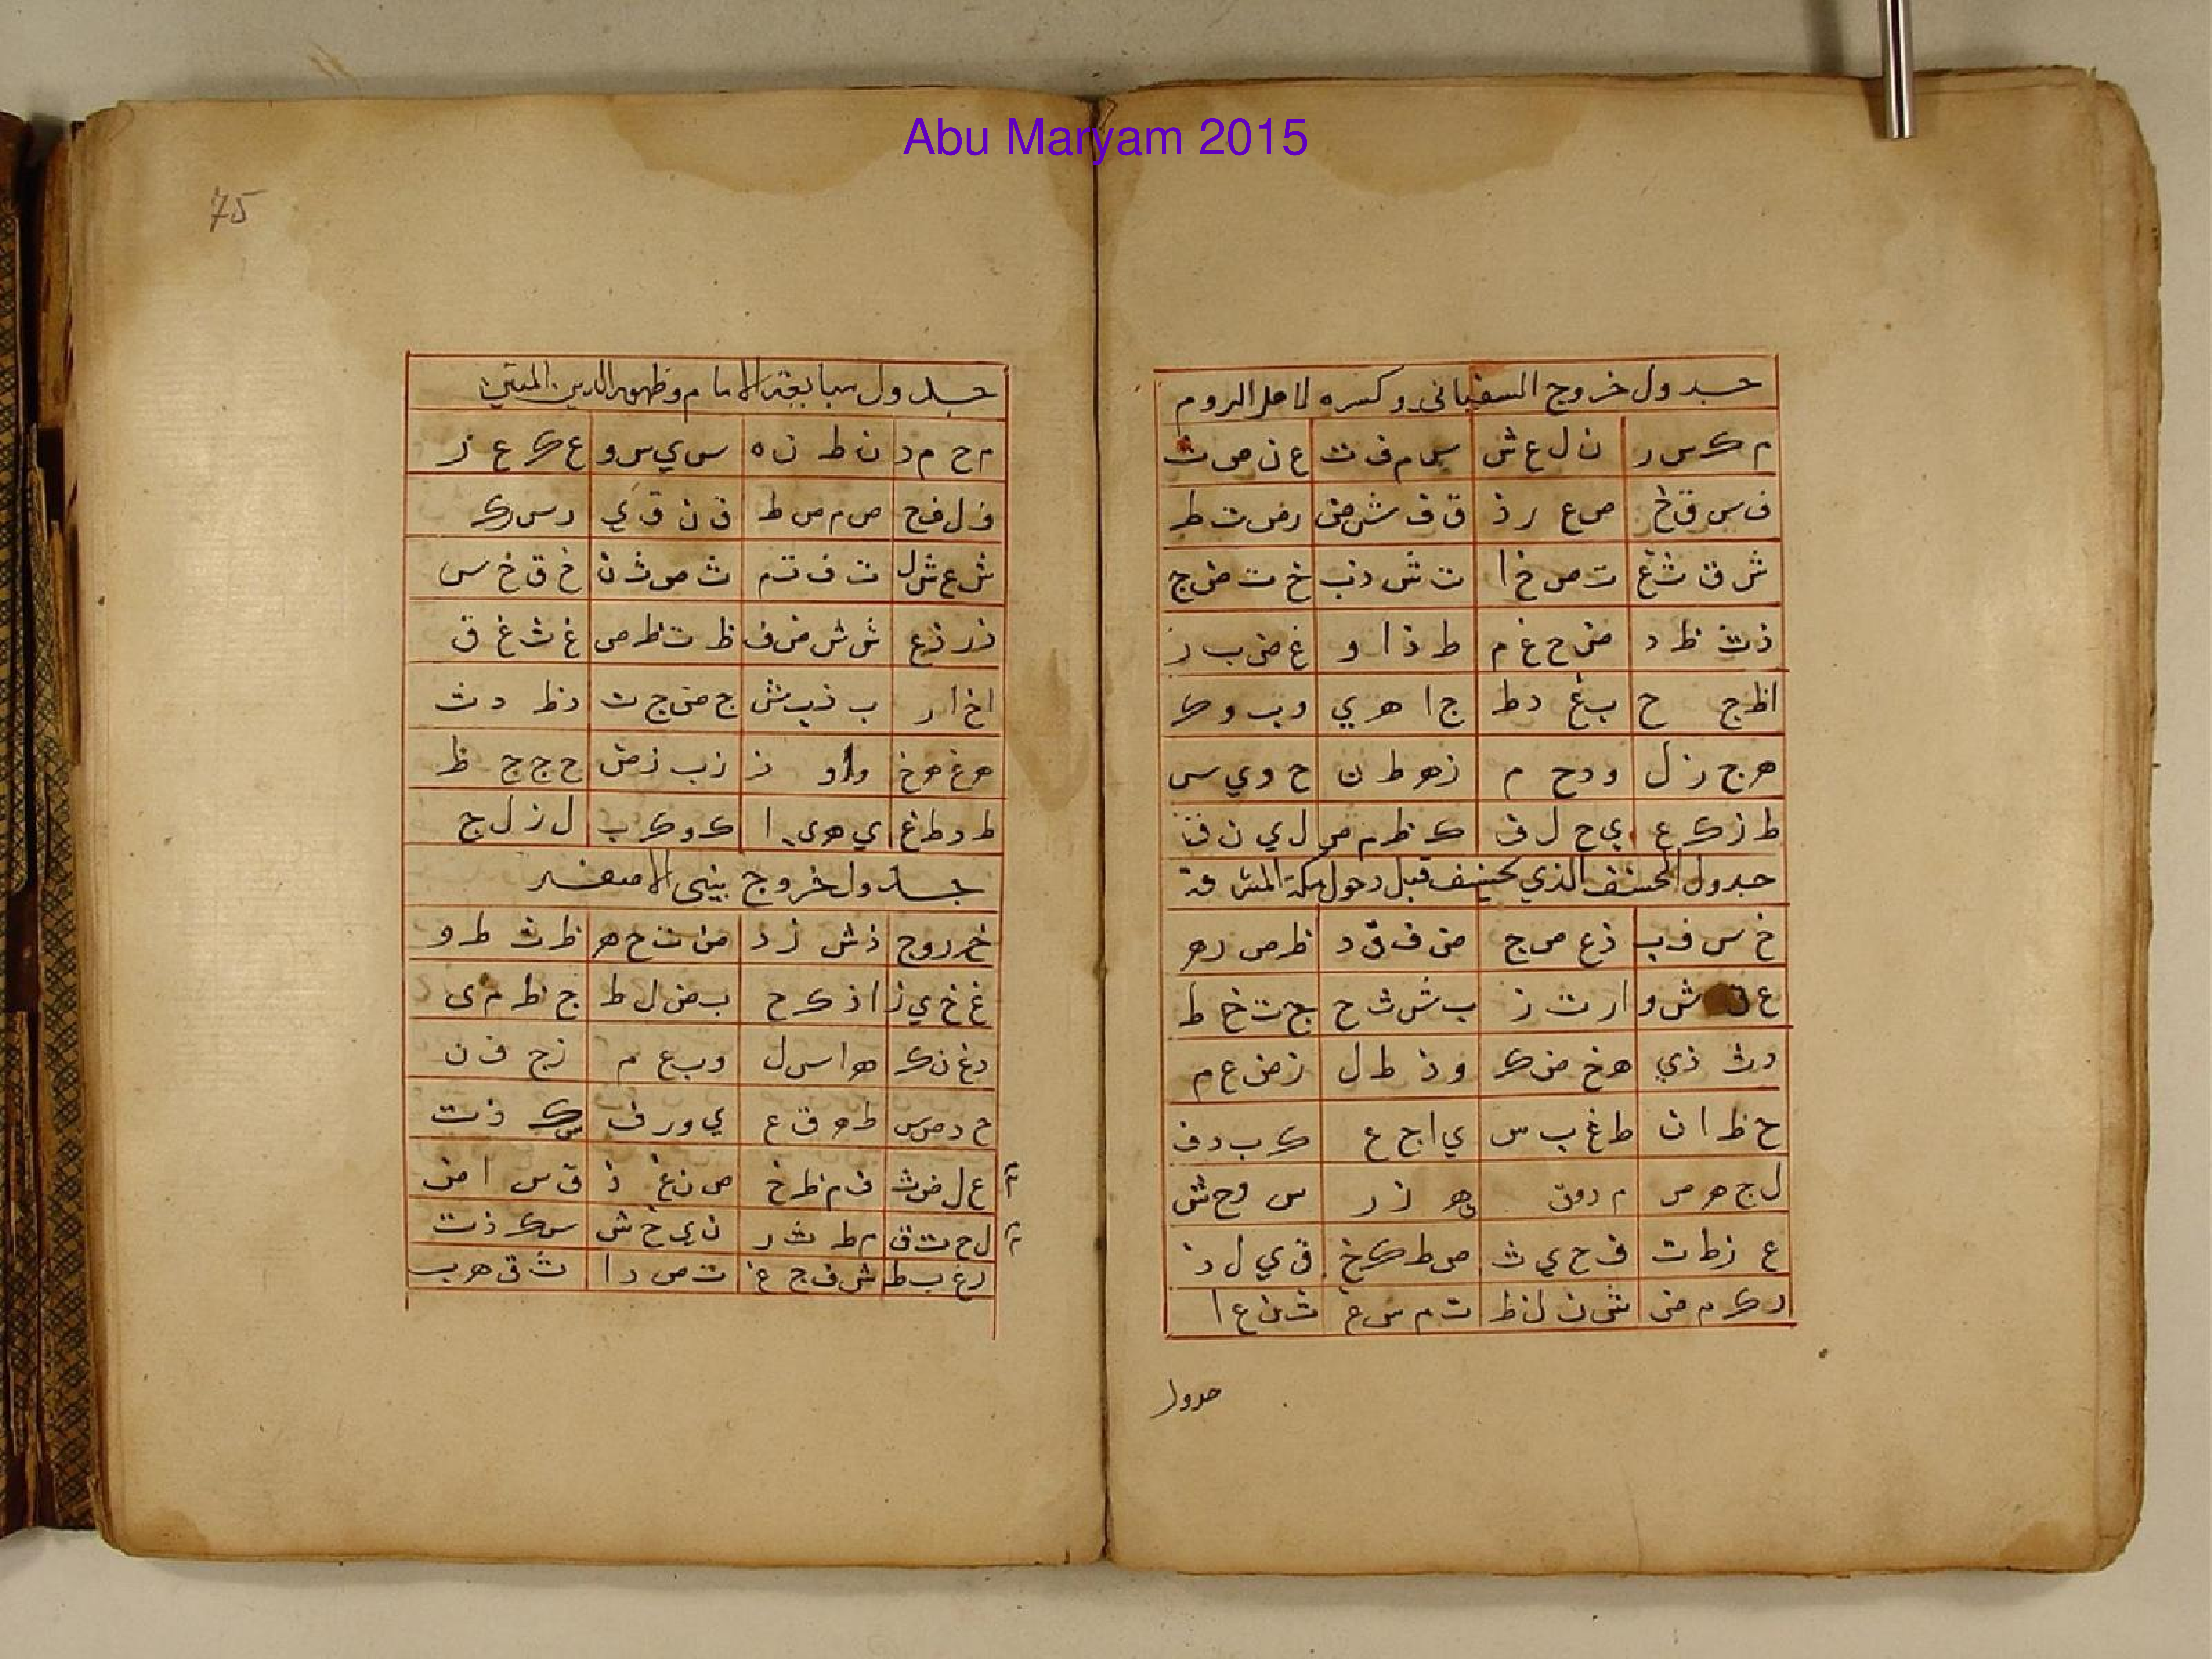 Abu Maryam 2015
جدول خروج السفيانى وكسره لاهل الروم
م ك س ر ن ل ع ش س م ف ت ع ن ص ث
ف س ق خ ص ع ر ذ ق ف ش ض ر ص ت ظ
ش ق ث غ ت ص خ ا ث ش ذ ب خ ت ض ج
ذ ث ظ د ض ح غ م ط ذ ا و غ ض ب ز
ا ظ ج ح ب غ د ط ج ا ه ي د ب و ك
ه ج ز ل و د ح م ز ه ط ن ح و ي س
ط ز ك ع ي ح ل ف ك ط م ص ل ي ن ق
جدول الخسف الذي يخسف قبل دخول مكة المشرفة
خ س ف ب ذ ع ص ج ض ف ق د ظ ص ر ه
ع ش و ا ر ت ز ب ش ث ح ج ت خ ط
د ث ذ ي ه خ ض ك و ذ ظ ل ز ض ع م
ح ظ ا ن ط غ ب س ي ا ج ع ك ب د ف
ل ج ه ص م د و ق ه ز ر س و ح ش
ع ز ط ت ف ح ي ث ص ط ك خ ق ي ل ذ
ر ك م ض ش ن ل ظ ت م س غ ث ن ع ا
جدول
75
جدول مبايعة الامام وظهور الدين المتين
م ح م د ن ط ن ه س ي س و ع ك ع ز
ف ل ف ح ص م ص ط ق ن ق ي ر س ر ك
ش ع ش ل ت ف ت م ث ص ث ن خ ق خ س
ذ ر ذ ع ض ش ض ف ظ ت ظ ص غ ث غ ق
ا خ ا ر ب ذ ب ش ج ض ج ت د ظ د ث
ه غ ه خ و ا و ذ ز ب ز ض ح ج ح ظ
ط د ط غ ي ه ي ا ك و ك ب ل ز ل ج
جدول خروج بني الاصفر
خ ر و ج ذ ش ز د ض ت ح ه ظ ث ط و
غ خ ي ز ا ذ ك ح ب ض ل ط ج ظ م ى
د غ ن ك ه ا س ل و ب ع م ز ج ف ن
ح د ص س ط ه ق ع ي و ر ف ك ز ش ص
ع ل ض ث ف م ظ خ ص ن غ ذ ق س ا ض
ل ح ت ق م ط ث ر ن ي خ ش س ك ذ ت
ر ع ب ط ش ف ج غ ت ص د ا ث ق ه ب